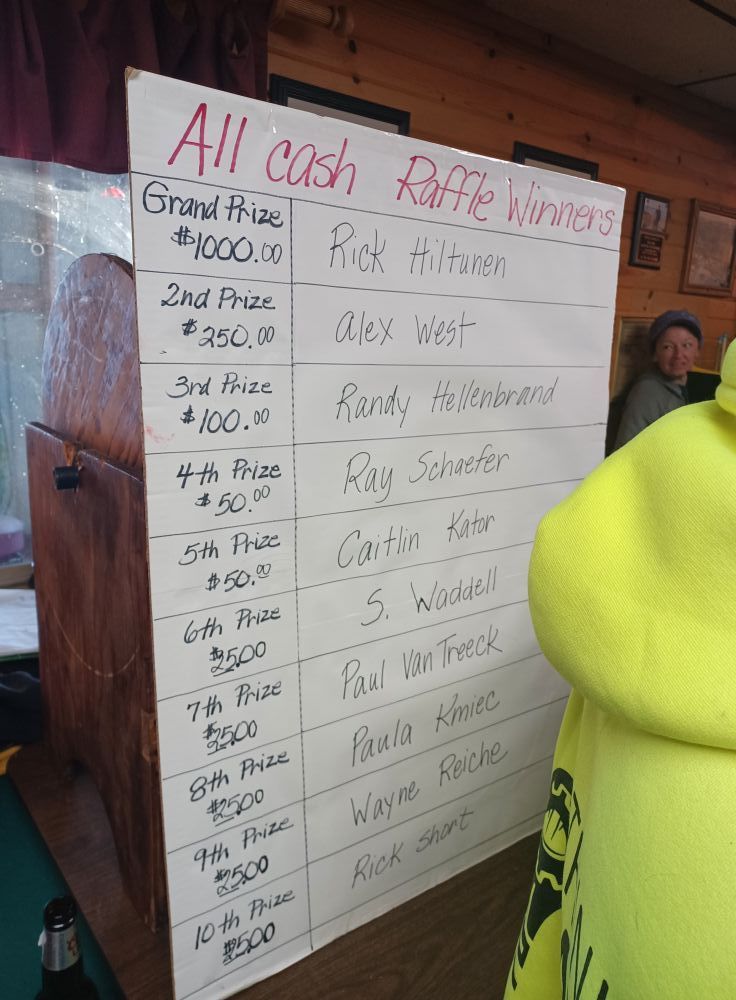 All cash Raffle Winners
Grand Prize
$1000.00
Rick Hiltunen
2nd Prize
$250.00
Alex West
3rd Prize
$100.00
Randy Hellenbrand
4th Prize
$50.00
Ray Schaefer
5th Prize
$50.00
Caitlin Kator
6th Prize
$25.00
S. Waddell
7th Prize
$25.00
Paul VanTreeck
8th Prize
$25.00
Paula Kmiec
9th Prize
$25.00
Wayne Reiche
10th Prize
$25.00
Rick Short